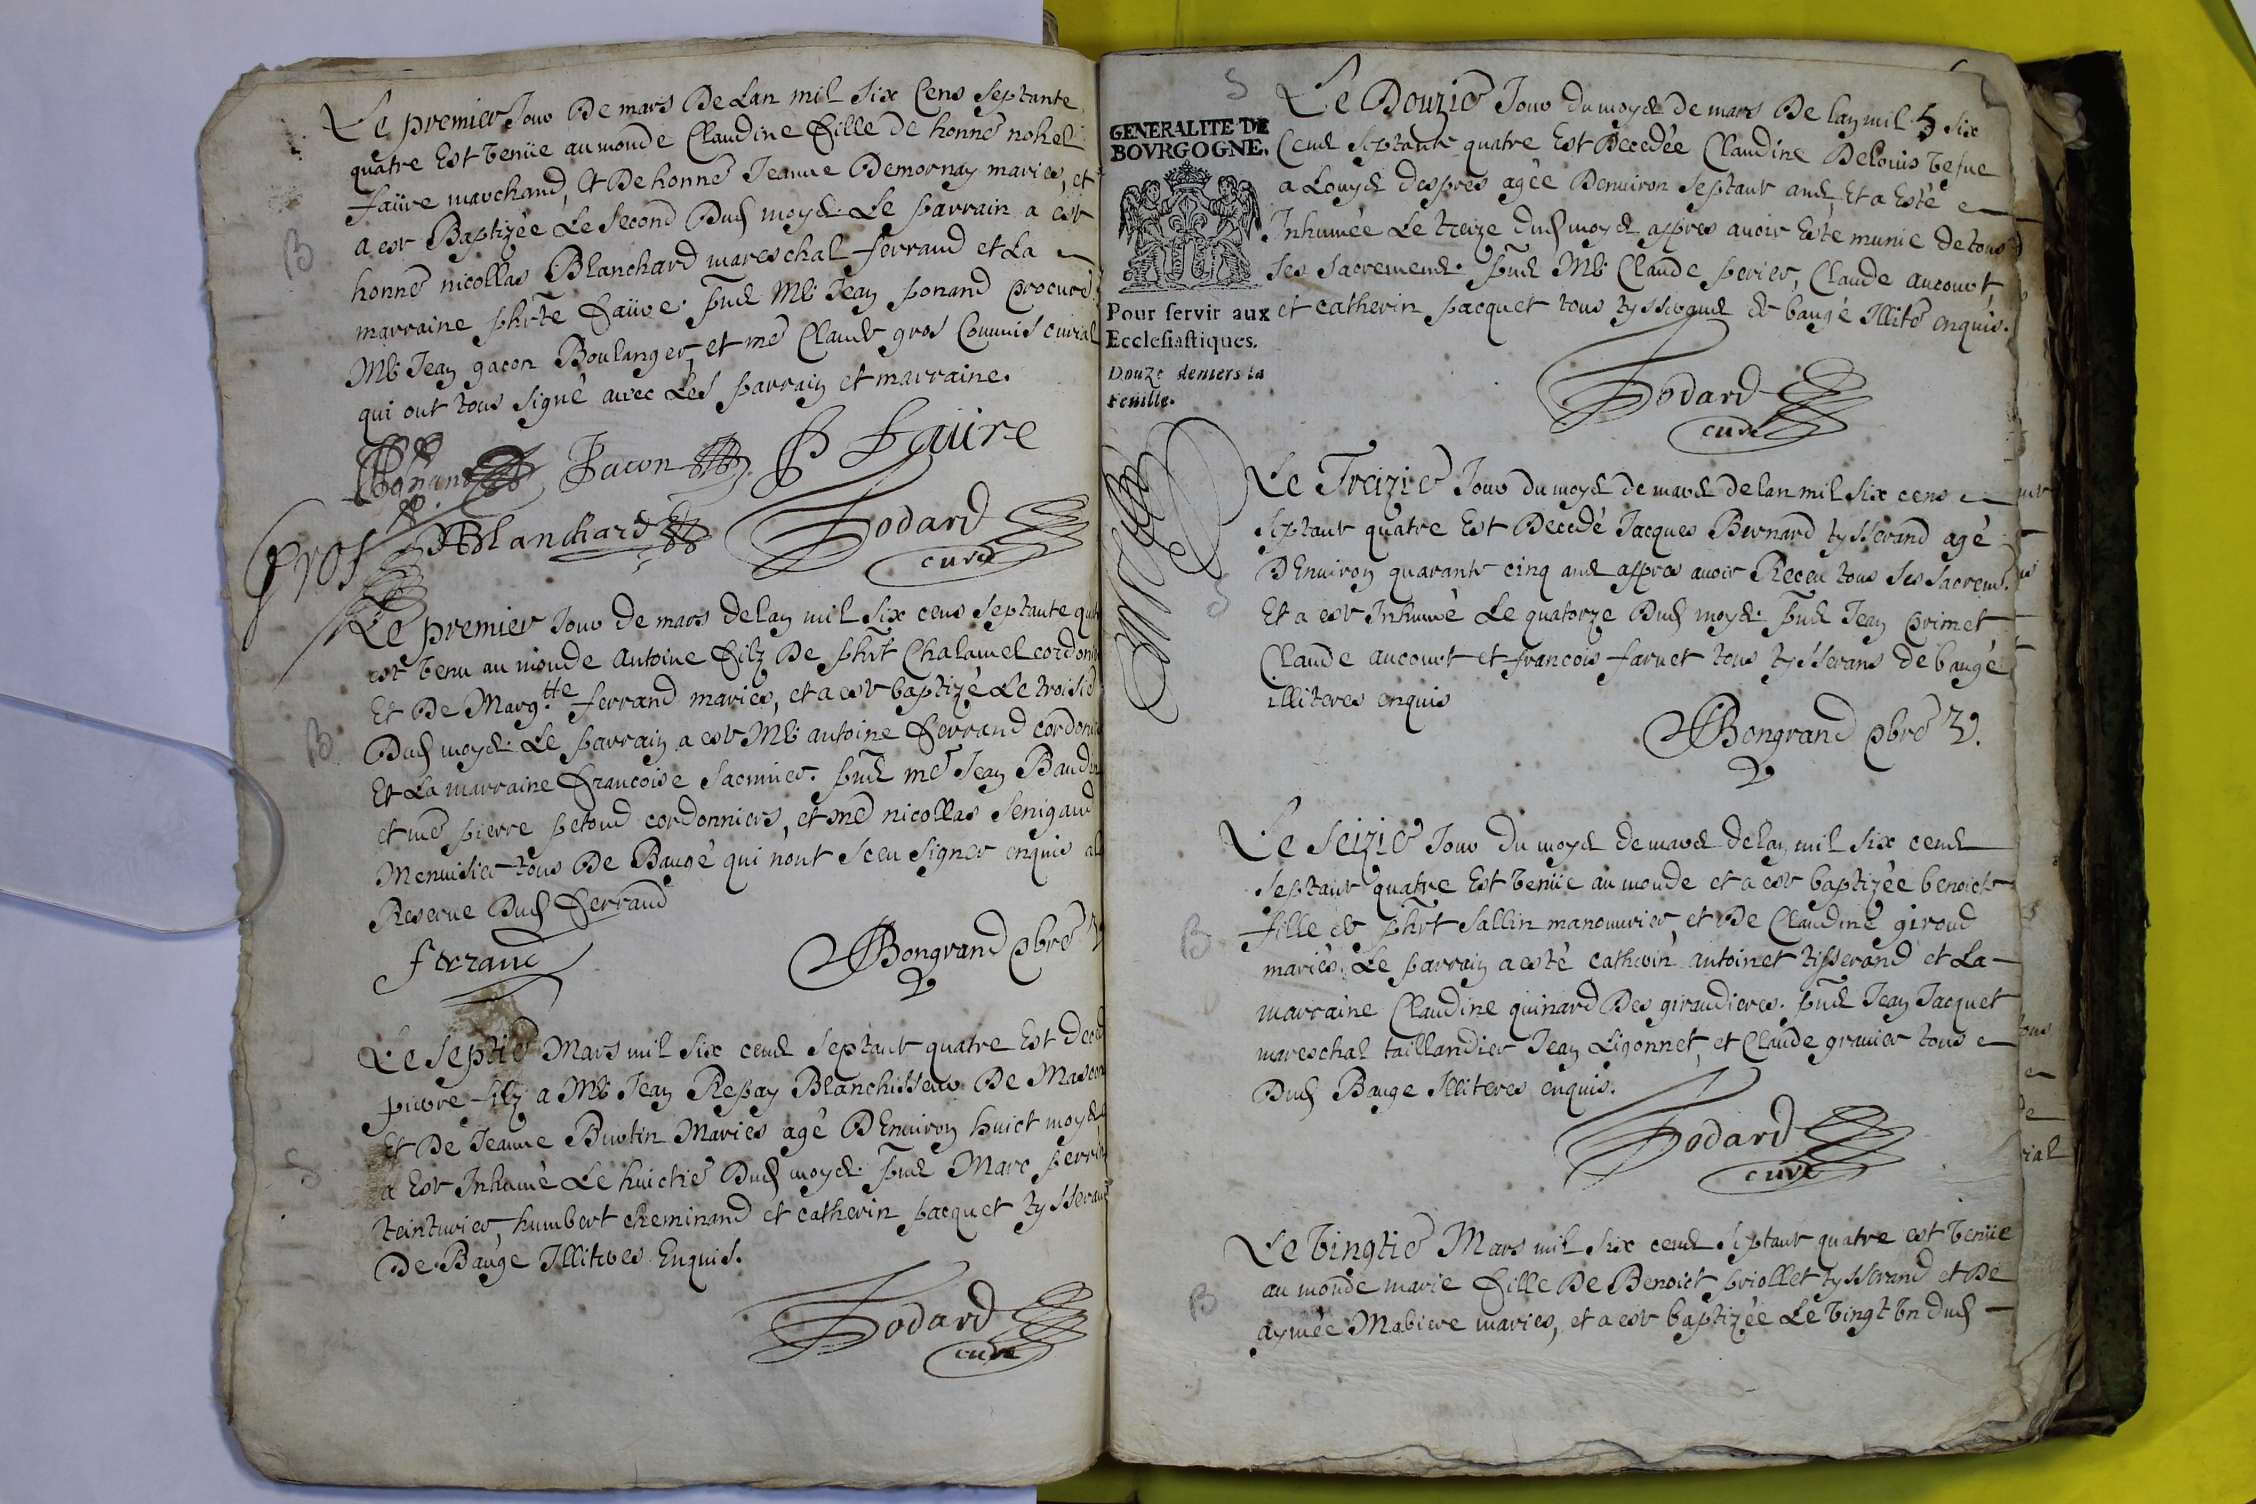 Le premier Jour De mars De Lan mil six Cens septante
quatre Est venüe au monde Claudine fille de honne nohel
faüre marchand, et De honne Jeanne Demornay maries, et
a est Baptizée Le second Dud moys. Le parrain a est
honne nicollas Blanchard mareschal ferrand et La
marraine phte faüre. pnd Me Jean ponand procure
Me Jean gacon Boulanger, et me Claude gros Commis curial
qui ont tous signé avec Les parrain et marraine.
Ponand Jacon P faüre
Gros Blanchard Fodard
curé
B
Le premier Jour de mars de lan mil six cens septante qua
est venu au monde antoine filz De phrt Chalamel cordon
Et De Margtte ferrand maries, et a est baptizé Le troisie
Dud moys. Le parrain a est Me antoine ferrand cordon
Et La marraine francoise Saonnier. pnd me Jean Baud
et me pierre petoud cordonniers, et me nicollas Senigaud
Menuisier tous De Baugé qui nont sceu signer enquis al
Reserve Dud ferrand
ferrand Bongrand pbre V
B
Le septie Mars mil six cend septant quatre Est dece
pierre filz a Me Jean Repay Blanchisseur De Mascon
Et De Jeanne Burtin Maries agé DEnviron huict moys
a Est Inhumé Le huictie Dud moys. pnd Marc perri
teinturier, humbert cheminand et catherin pacquet tysserand
De Baugé Illiteres Enquis.
Fodard
curé
S
S
GENERALITE DE
BOVRGOGNE.
Pour servir aux
Ecclesiastiques.
Douze deniers la
feuille.
Le Douzie Jour du moys de mars De lan mil 5 six
Cend septante quatre Est Decedée Claudine Delouis vefue
a Louys despres agée Denviron septant ans Et a Esté
Inhumée Le treize dud moys appres avoir Esté munie de tous
ses sacremend. pnd Me Claude perier, Claude aucourt
et catherin pacquet tous tysserand de baugé Illite enquis.
Fodard
curé
Le Treizie Jour du moys de mars de lan mil six cens
septant quatre Est Decedé Jacques Bernard tysserand agé
DEnviron quarante cinq ans appres avoir Receu tous ses sacrem.
Et a est Inhumé Le quatorze Dud moys. pnd Jean primet
Claude aucourt et francois farnet tous tysserans de baugé
illiteres enquis
Bongrand pbre V.
S
Le Seizie Jour du moys de mars de lan mil six cend
septant quatre Est venüe au monde et a est baptizée benoicte
fille de phrt Sallin manouvrier, et De Claudine giroud
mariés. Le parrain a esté catherin antoinet tisserand et La
marraine Claudine guinard Des giraudieres. pnd Jean Jacquet
mareschal taillandier Jean Ligonnet, et Claude granier tous
Dud Bauge Illiteres enquis.
Fodard
curé
B
Le vingtie Mars mil six cend septant quatre est venüe
au monde marie fille De Benoict priollet tysserand et De
aymée Mabiere maries, et a est baptizée Le vingt vn dud
B